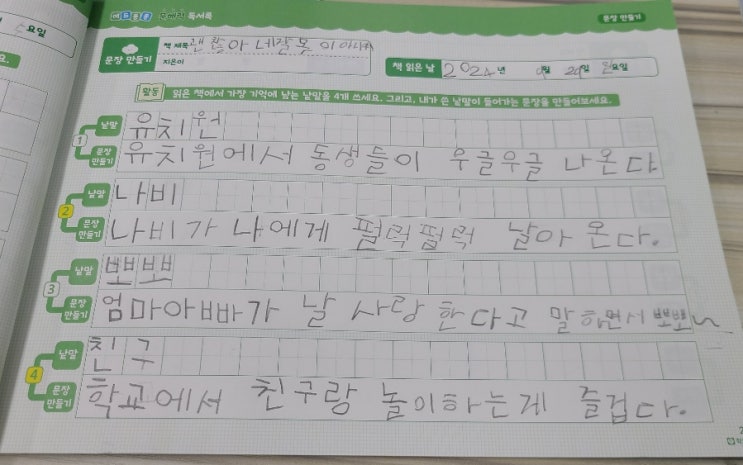 요일
요.
에드콩콩 우예린 독서록
문장 만들기
문장 만들기
책 제목 괜찮아 네잘못이아니야
지은이
책 읽은 날 2024년 월 일 요일
활동 읽은 책에서 가장 기억에 남는 낱말을 4개 쓰세요. 그리고, 내가 쓴 낱말이 들어가는 문장을 만들어보세요.
1 낱말 유치원
문장 만들기 유치원에서 동생들이 우글우글 나온다
2 낱말 나비
문장 만들기 나비가 나에게 펄럭펄럭 날아온다.
3 낱말 뽀뽀
문장 만들기 엄마아빠가 날 사랑한다고 말하면서 뽀뽀~
4 낱말 친구
문장 만들기 학교에서 친구랑 놀이하는게 즐겁다.